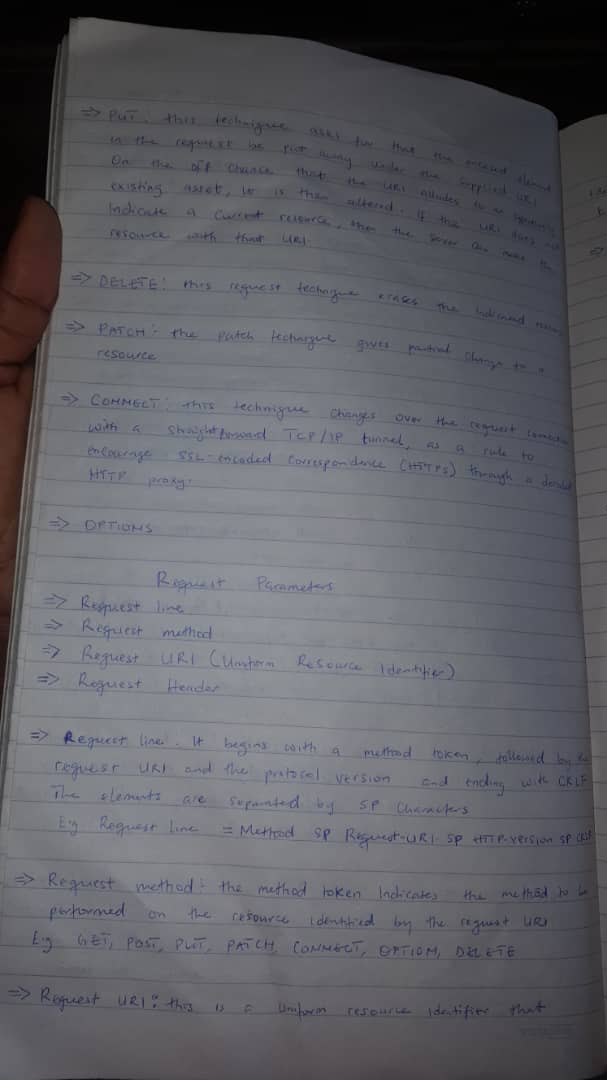 => PUT: this technique asks for that the encased element
in the request be put away under the supplied URI.
On the off chance that the URI alludes to an
existing asset, it is then altered. If the URI does not
Indicate a current resource, then the server can make the
resource with that URI.
=> DELETE: this request technique erases the indicated
=> PATCH: the patch technique gives partial change to a
resource
=> CONNECT: this technique changes over the request
with a straightforward TCP/IP tunnel, as a rule to
encourage SSL-encoded Correspondence (HTTPS) through a
HTTP proxy.
=> OPTIONS
Request Parameters
=> Request line
=> Request method
=> Request URI (Uniform Resource Identifier)
=> Request Header
=> Request line. It begins with a method token, followed by the
request URI and the protocol version and ending with CRLF
The elements are separated by SP Characters
Eg Request line = Method SP Request-URI SP HTTP-version SP CRLF
=> Request method: the method token Indicates the method to be
performed on the resource identified by the request URI
Eg GET, POST, PUT, PATCH, CONNECT, OPTION, DELETE
=> Request URI: this is a Uniform resource identifier that